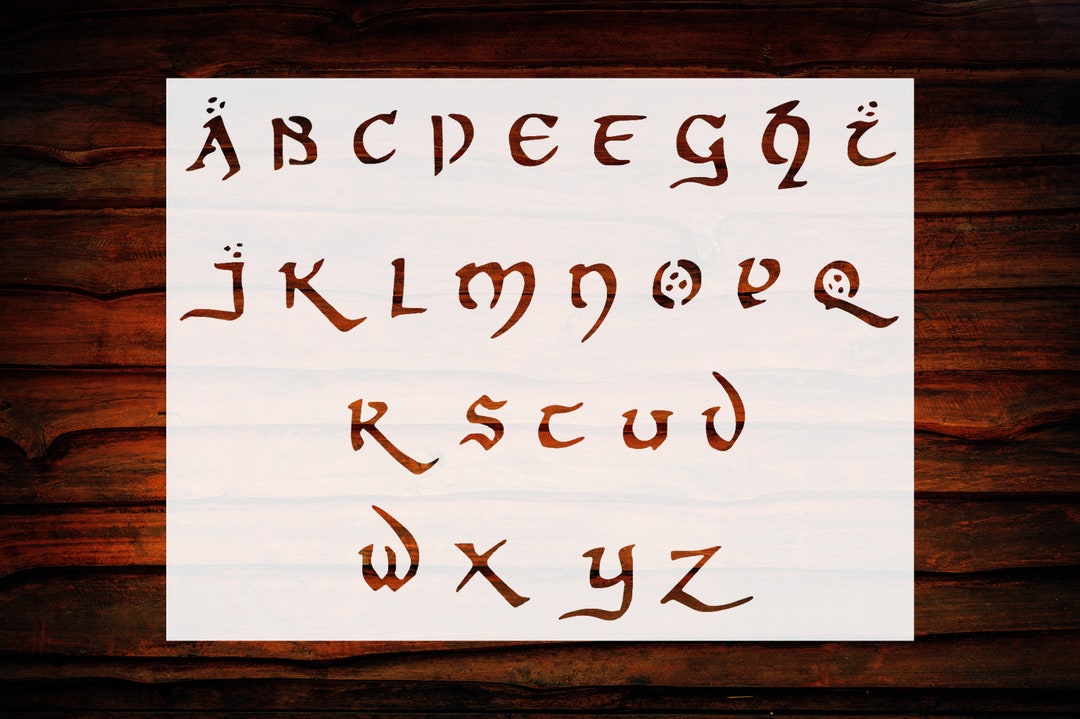 A B C D E F G H I
J K L M N O P Q
R S T U V
W X Y Z